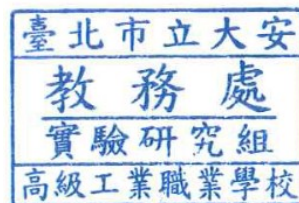 臺北市立大安
教務處
實驗研究組
高級工業職業學校